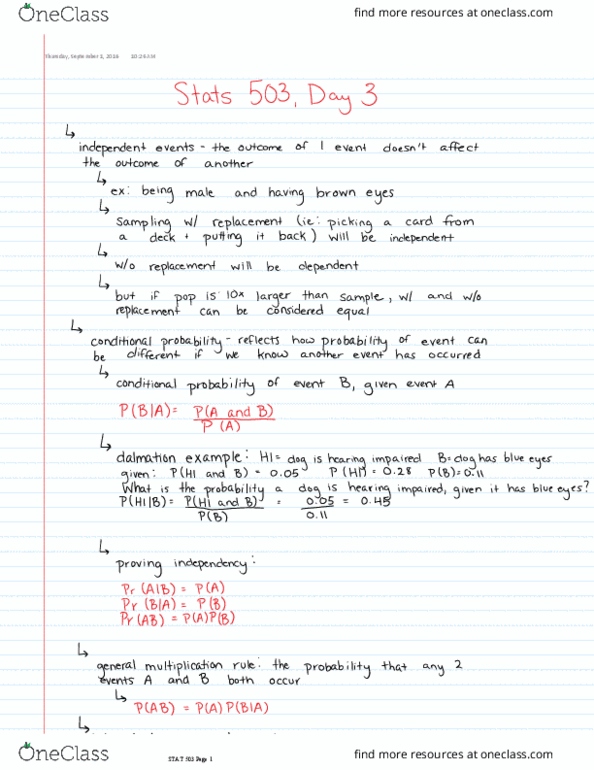 OneClass
find more resources at oneclass.com
Thursday, September 1, 2016 10:26 AM
Stats 503, Day 3
independent events - the outcome of 1 event doesn't affect
the outcome of another
ex: being male and having brown eyes
sampling w/ replacement (ie: picking a card from
a deck + putting it back) will be independent
w/o replacement will be dependent
but if pop is 10x larger than sample, w/ and w/o
replacement can be considered equal
conditional probability - reflects how probability of event can
be different if we know another event has occurred
conditional probability of event B, given event A
P(B|A) = P(A and B)
P(A)
dalmation example: HI = dog is hearing impaired B = dog has blue eyes
given: P(HI and B) = 0.05 P(HI) = 0.28 P(B) = 0.11
What is the probability a dog is hearing impaired, given it has blue eyes?
P(HI|B) = P(HI and B) = 0.05 = 0.45
P(B) 0.11
proving independency:
Pr(A|B) = P(A)
Pr(B|A) = P(B)
Pr(AB) = P(A)P(B)
general multiplication rule: the probability that any 2
events A and B both occur
P(AB) = P(A)P(B|A)
OneClass
STAT 503 Page 1
find more resources at oneclass.com